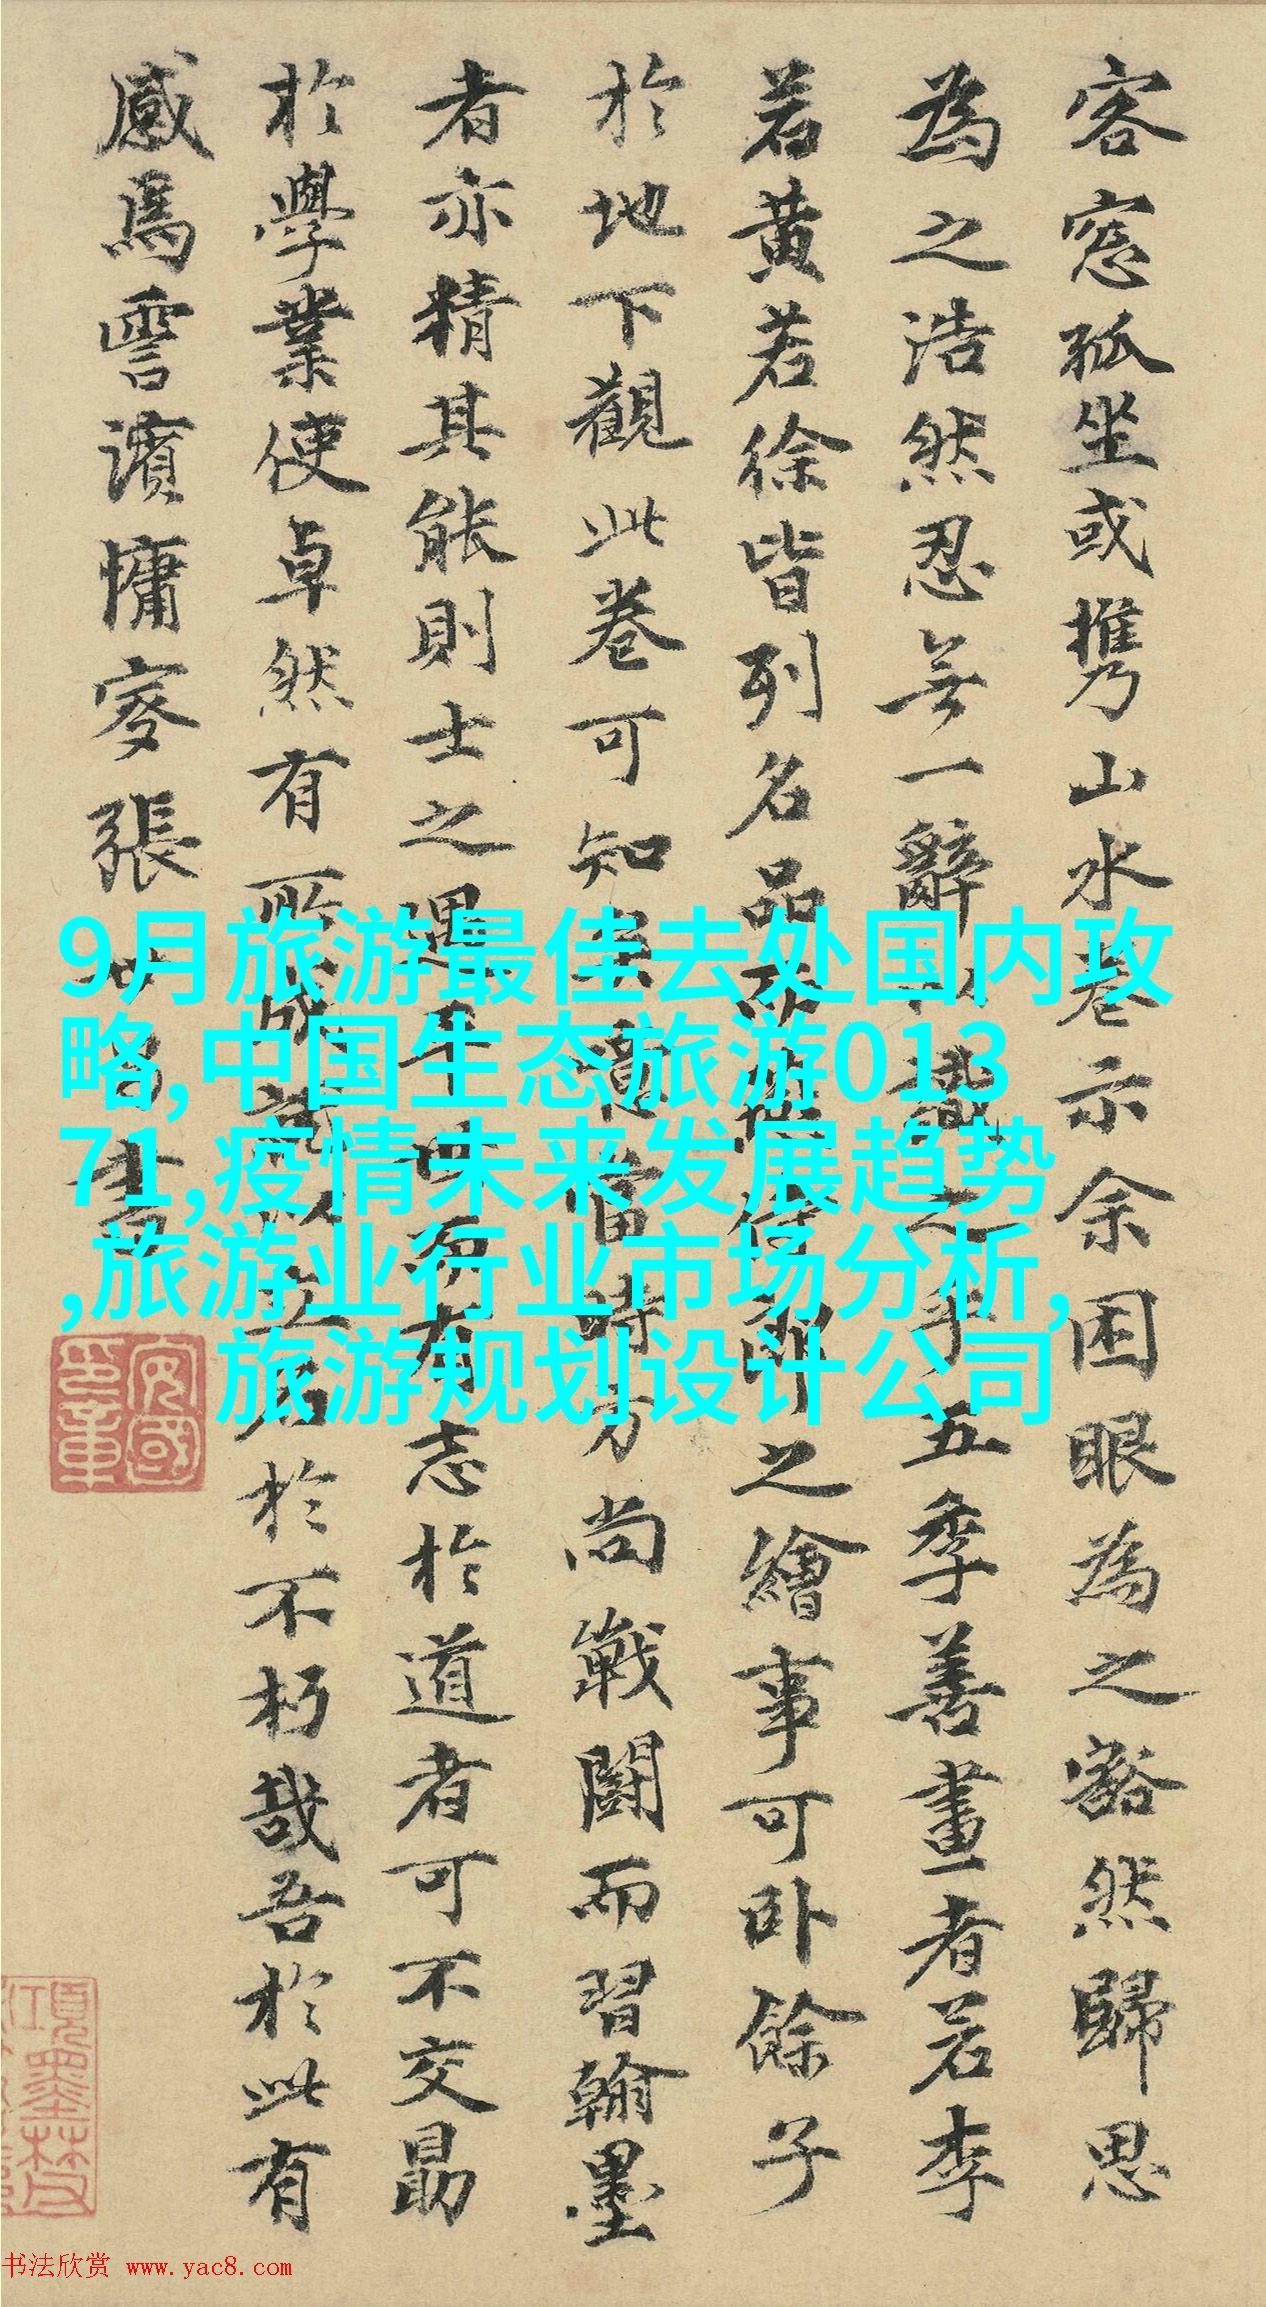 客窓孤坐或携山水卷示余困眼為之豁然歸思
為之浩然忍無一辭以識之乎五季善畫者若李
若黄若徐皆列名品侍郎之繪事可卧餘子
於地下觀此卷可知憶當時方尚戰鬭而習翰墨
者亦精其能則士之遇平世而有志於道者可不交勗
於學業使卓然有所成就以立名於不朽哉吾於此有
感焉霅濱慵叟張書
9月旅游最佳去处国内攻
略,中国生态旅游013
71,疫情未来发展趋势
,旅游业行业市场分析,
旅游规划设计公司
书法欣赏 www.yac8.com